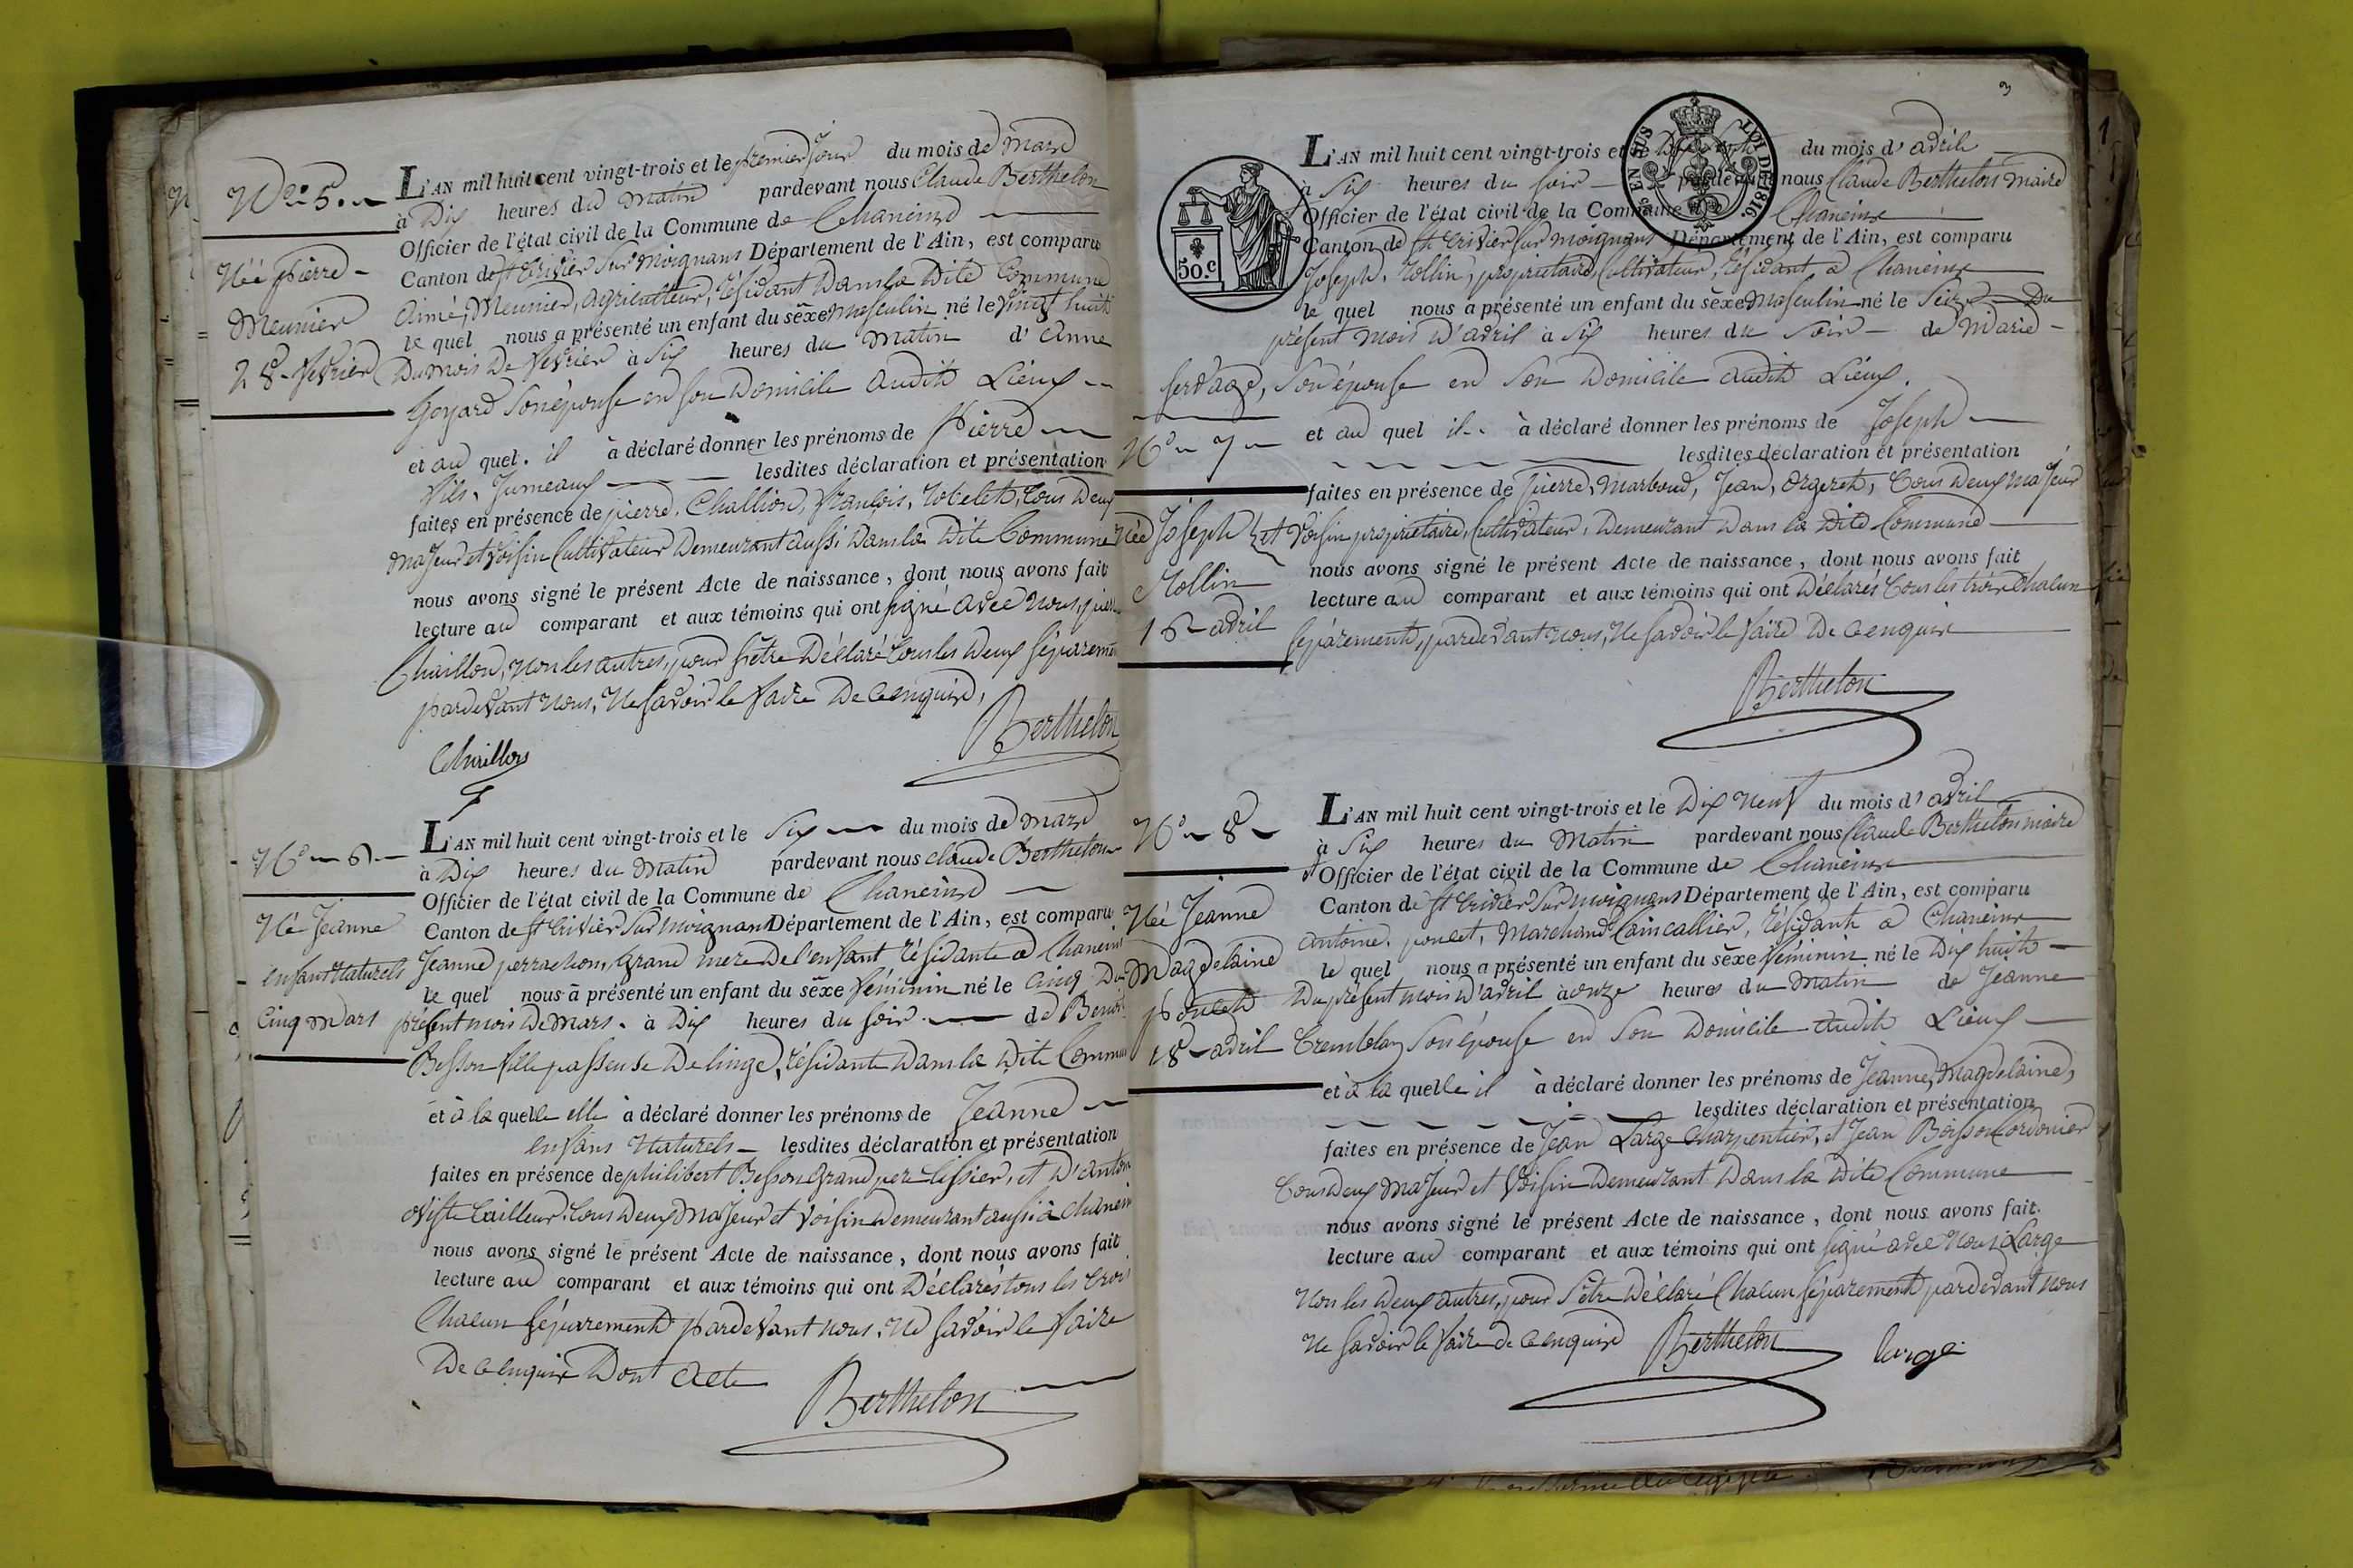 N.o 5.
Née Pierre
Meunier
28 fevrier
L'AN mil huit cent vingt-trois et le premier Jour du mois de Mars
à Dix heures du Matin pardevant nous Claude Berthelon
Officier de l'état civil de la Commune de Chaneins
Canton de St trivier Sur Moignans Département de l'Ain, est comparu
Aimé, Meunier, agriculteur, résidant Dans la Dite Commune
le quel nous a présenté un enfant du sèxe masculin né le vingt huit
Du mois De fevrier à Six heures du Matin d'Anne
Goyard Son épouse en Son Domicile Audit Lieux
et au quel il à déclaré donner les prénoms de Pierre
fils Jumeaux lesdites déclaration et présentation
faites en présence de pierre Chaillon, francois, tous Deux
majeur et Voisin Cultivateur Demeurant aussi Dans la Dite Commune
nous avons signé le présent Acte de naissance, dont nous avons fait
lecture au comparant et aux témoins qui ont signé avec Nous,
Chaillon, Non les autres, pour Sêtre Déclaré tous les Deux Séparement
pardevant Nous, Ne Savoir le faire De ce enquis,
Chaillon
Berthelon
N.o 6.
Né Jeanne
enfans Naturels
Cinq Mars
L'AN mil huit cent vingt-trois et le Six du mois de Mars
à Dix heures du Matin pardevant nous claude Berthelon
Officier de l'état civil de la Commune de Chaneins
Canton de St trivier Sur Moignans Département de l'Ain, est comparu
Jeanne perrachon, grand mere De l'enfant résidante a Chaneins
le quel nous à présenté un enfant du sèxe féminin né le Cinq Du
présent mois De Mars. à Dix heures du soir de
Besson fille passeuse De linge, résidante Dans la Dite Commune
et à la quelle elle à déclaré donner les prénoms de Jeanne
enfans Naturels lesdites déclaration et présentation
faites en présence de philibert Besson Grand pere tissier, et D'antoine
tailleur, tous Deux Majeur et Voisin Demeurant aussi à Chaneins
nous avons signé le présent Acte de naissance, dont nous avons fait
lecture au comparant et aux témoins qui ont Déclarés tous les trois
Chacun Séparement pardevant nous, Ne Savoir le faire
De ce enquis Dont Acte
Berthelon
3
EN SUS
LOI DE 1816.
50.c
N.o 7
Née Joseph
Rollin
16 avril
L'AN mil huit cent vingt-trois et le du mois d'avril
à Six heures du soir pardevant nous Claude Berthelon Maire
Officier de l'état civil de la Commune de Chaneins
Canton de St trivier sur moignans Département de l'Ain, est comparu
Joseph, Rollin, proprietaire, Cultivateur, résidant a Chaneins
le quel nous a présenté un enfant du sèxe Masculin né le Seize Du
présent mois D'avril à Six heures du Soir de Marie
Servage, Son épouse en Son Domicile Audit Lieux.
et au quel il à déclaré donner les prénoms de Joseph
lesdites déclaration et présentation
faites en présence de Pierre, Marboud, Jean, Orgeret, tous Deux Majeur
et Voisin proprietaire, Cultivateur, Demeurant Dans la Dite Commune
nous avons signé le présent Acte de naissance, dont nous avons fait
lecture au comparant et aux témoins qui ont Déclarés tous les trois Chacun
Séparement, pardevant nous, Ne Savoir le faire De ce enquis
Berthelon
N.o 8
Née Jeanne
Magdelaine
poncet
18 avril
L'AN mil huit cent vingt-trois et le Dix Neuf du mois d'avril
à Six heures du Matin pardevant nous Claude Berthelon maire
Officier de l'état civil de la Commune de Chaneins
Canton de St trivier Sur moignans Département de l'Ain, est comparu
antoine, poncet, Marchand Caincallier, résidant a Chaneins
le quel nous a présenté un enfant du sèxe féminin né le Dix huit
Du présent mois D'avril à onze heures du Matin de Jeanne
Tremblay Son épouse en Son Domicile Audit Lieux
et à la quelle il à déclaré donner les prénoms de Jeanne, Magdelaine,
lesdites déclaration et présentation
faites en présence de Jean Large Charpentier, et Jean Cordonier
tous deux Majeur et Voisin Demeurant Dans la Dite Commune
nous avons signé le présent Acte de naissance, dont nous avons fait
lecture au comparant et aux témoins qui ont signé avec Nous Large
Non les Deux autres, pour Sêtre Déclaré Chacun Séparement pardevant nous
Ne Savoir le faire De ce enquis Berthelon large